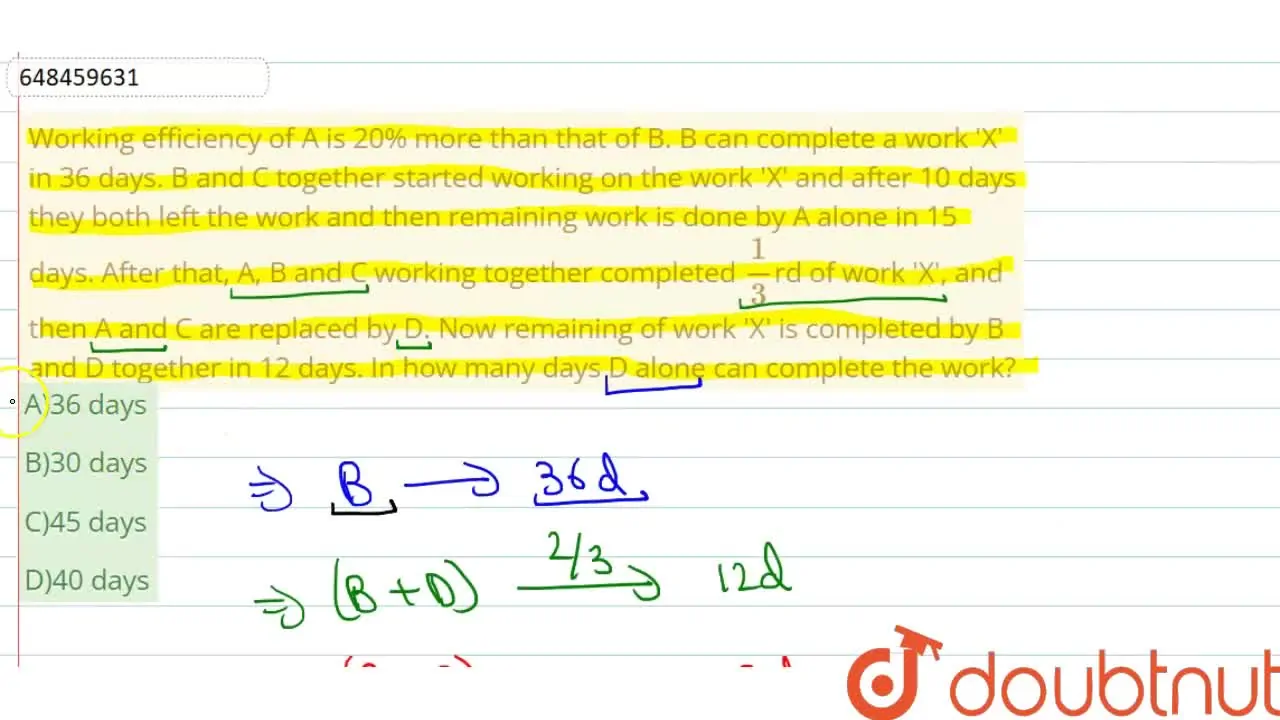 648459631
Working efficiency of A is 20% more than that of B. B can complete a work 'X'
in 36 days. B and C together started working on the work 'X' and after 10 days
they both left the work and then remaining work is done by A alone in 15
days. After that, A, B and C working together completed 1/3 rd of work 'X', and
then A and C are replaced by D. Now remaining of work 'X' is completed by B
and D together in 12 days. In how many days D alone can complete the work?
A)36 days
B)30 days
C)45 days
D)40 days
⇒ B → 36d
⇒ (B+D) 2/3 → 12d
doubtnut